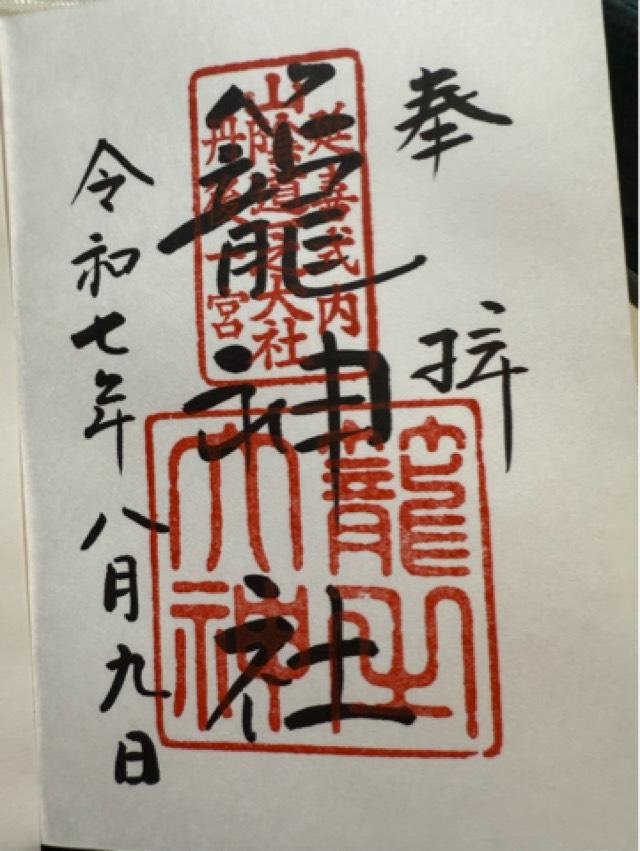 奉拝
籠神社
延喜式内
山陰道一之大社
丹後一宮
籠之大神
令和七年八月九日